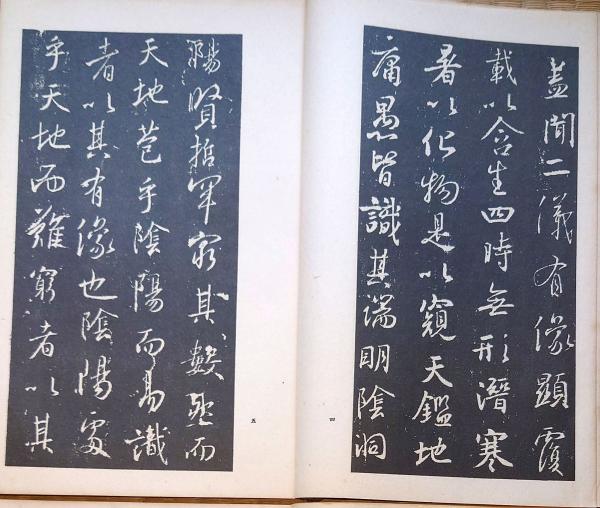 蓋聞二儀有像顯覆
載以含生四時無形潛寒
暑以化物是以窺天鑑地
庸愚皆識其端明陰洞
四
陽賢哲罕窮其數然而
天地苞乎陰陽而易識
者以其有像也陰陽處
乎天地而難窮者以其
五